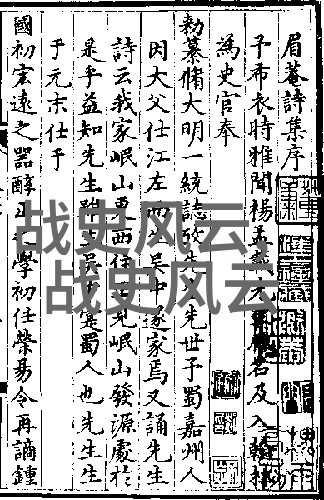 眉菴詩集序
予布衣時雅聞楊孟載先名及入翰林
為史官奉
勑纂脩大明一統誌攷先先世予蜀嘉州人
因大父仕江左而吳中遂家焉又誦先生
詩云我家岷山更西住見岷山發源處於
是乎益知先生雖吳實蜀人也先生生
于元末仕于
國初宏遠之器醇正學初任滎昜令再謫鍾
战史风云
战史风云